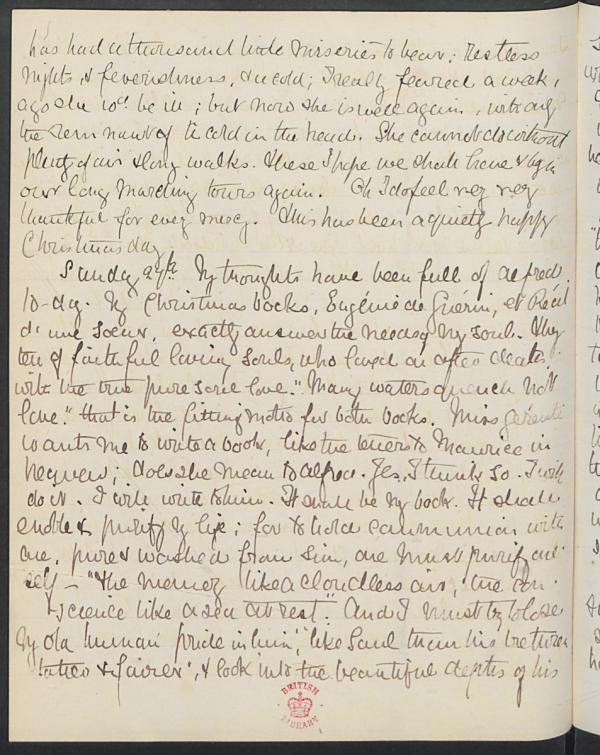 has had a thousand little miseries to bear; restless
nights, & feverishness, & a cold; I really feared a week,
ago she wd be ill; but now she is well again, with only
the remnant of the cold in the head. She cannot do without
plenty of air & long walks. These I hope we shall have & begin
our long marching tours again. Oh I do feel very very
thankful for every mercy. This has been a quietly happy
Christmas day
Sunday 29th. My thoughts have been full of Alfred
to-day. My Christmas books, Eugénie de Guérin, et Récit
d'une Soeur, exactly answer the needs of my soul. They
tell of faithful loving souls, who loved on after death
with the true pure sore love. "Many waters quench not
love." that is the fitting motto for both books. Miss
wants me to write a book, like the letters to Maurice in
heaven; does she mean to Alfred. Yes, I think so. I will
do it. I will write to him. It shall be my book. It shall
enoble & purify my life; for to hold communion with
one, pure & washed from sin, one must purify one
self - "the memory like a cloudless air, the con-
science like a sea at rest." And I must try to lose
my old human pride in him, "like Saul than his brethren
taller & fairer", & look into the beautiful depths of his
BRITISH
LIBRARY